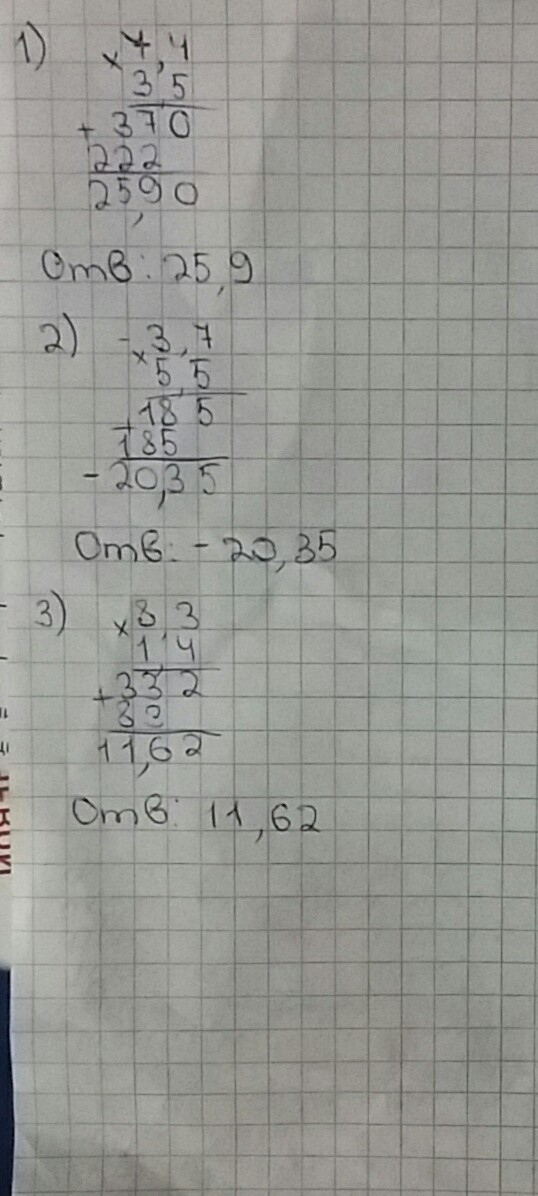 1) × 7,4
3,5
+ 370
222
2590
,
Отв: 25,9
2) - × 3,7
5,5
+ 185
185
- 20,35
Отв: - 20,35
3) × 8,3
1,4
+ 332
83
11,62
Отв: 11,62